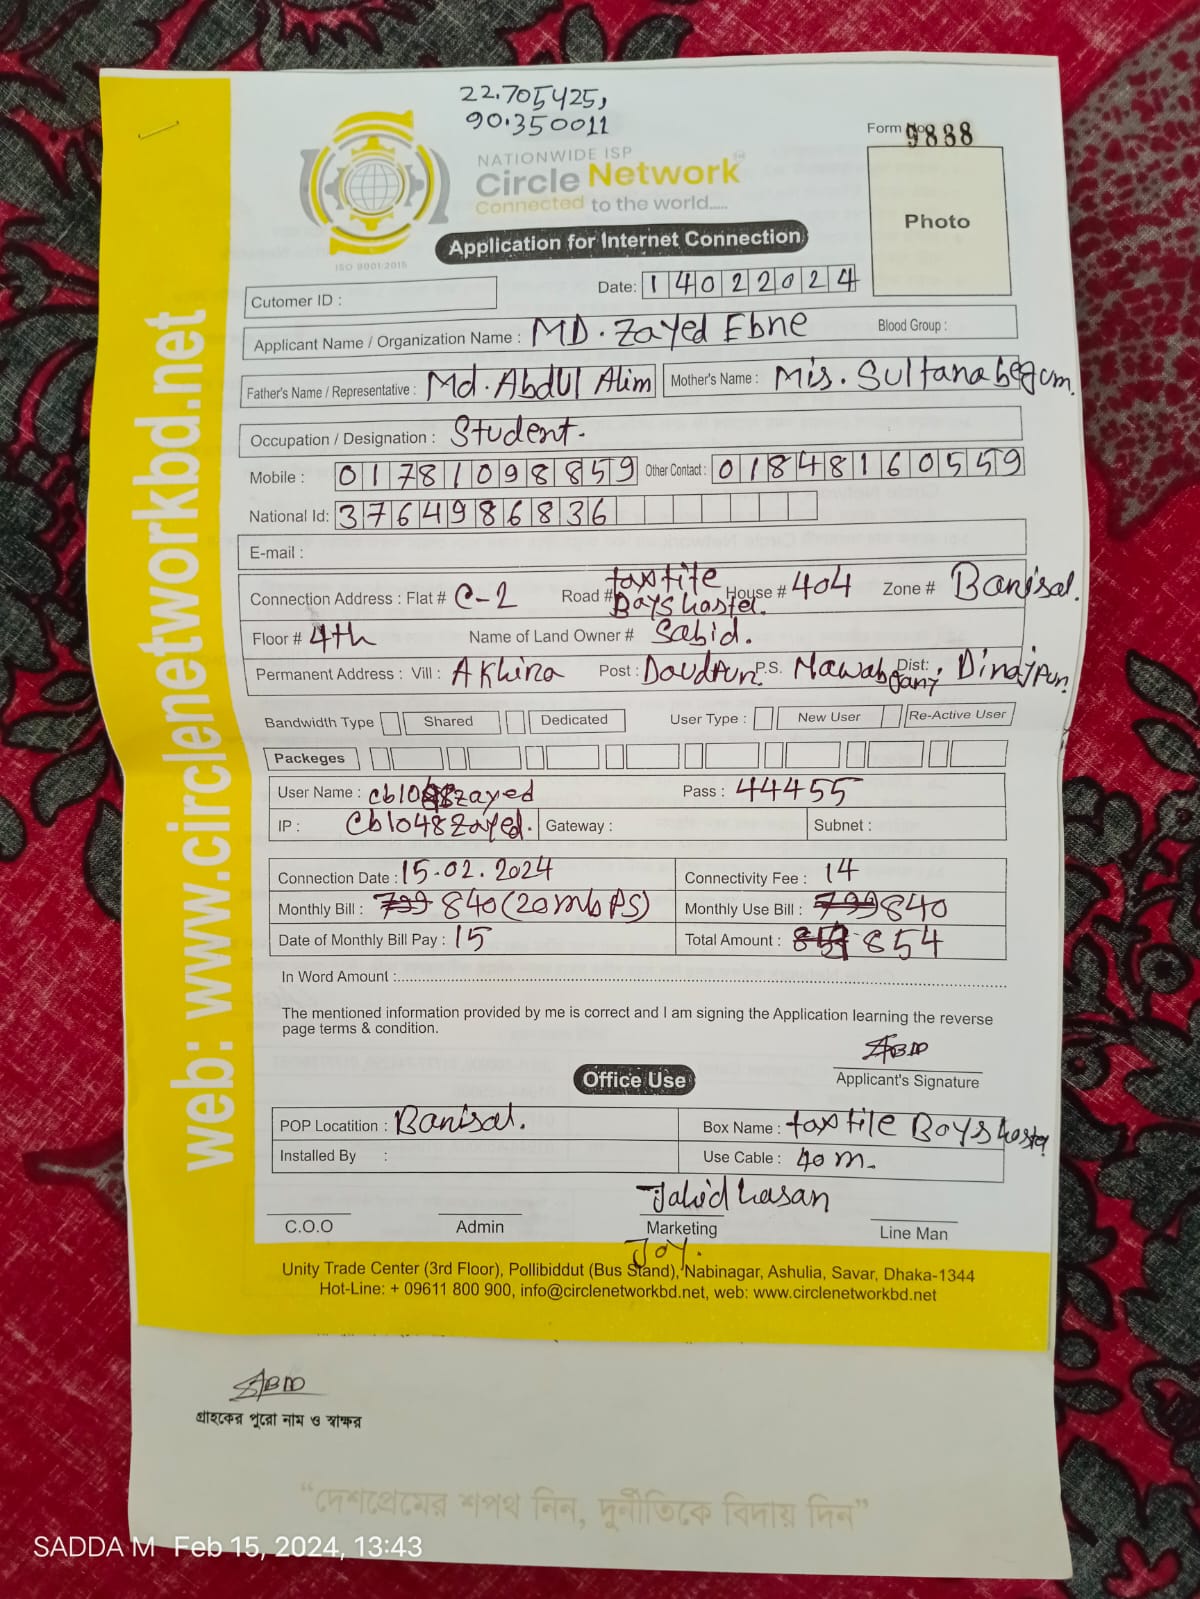 22.705425,
90.350011
Form No 9888
NATIONWIDE ISP
Circle Network™
Connected to the world.....
Photo
Application for Internet Connection
ISO 9001:2015
Date: 14022024
Cutomer ID :
Applicant Name / Organization Name : MD. Zayed Ebne Blood Group :
Father's Name / Representative : Md. Abdul Alim Mother's Name : Mis. Sultana begum.
Occupation / Designation : Student.
Mobile : 01781098859 Other Contact : 01848160559
National Id: 3764986836
E-mail :
Connection Address : Flat # C-2 Road # taxtile Boys hostel. House # 404 Zone # Barisal.
Floor # 4th Name of Land Owner # Sabid.
Permanent Address : Vill : Akhira Post : Daudpur P.S. Nawabganj Dist: Dinajpur.
Bandwidth Type Shared Dedicated User Type : New User Re-Active User
Packeges
User Name : cb1048zayed Pass : 44455
IP : Cb1048zayed. Gateway : Subnet :
Connection Date : 15-02.2024 Connectivity Fee : 14
Monthly Bill : 799 840 (20 mbps) Monthly Use Bill : 799 840
Date of Monthly Bill Pay : 15 Total Amount : 854
In Word Amount :
The mentioned information provided by me is correct and I am signing the Application learning the reverse
page terms & condition.
Applicant's Signature
Office Use
POP Locatition : Barisal. Box Name : taxtile Boys hostel
Installed By : Use Cable : 40 m.
Jahid hasan
C.O.O Admin Marketing Line Man
Joy.
Unity Trade Center (3rd Floor), Pollibiddut (Bus Stand), Nabinagar, Ashulia, Savar, Dhaka-1344
Hot-Line: + 09611 800 900, info@circlenetworkbd.net, web: www.circlenetworkbd.net
web: www.circlenetworkbd.net
গ্রাহকের পুরো নাম ও স্বাক্ষর
“দেশপ্রেমের শপথ নিন, দুর্নীতিকে বিদায় দিন”
SADDA M Feb 15, 2024, 13:43